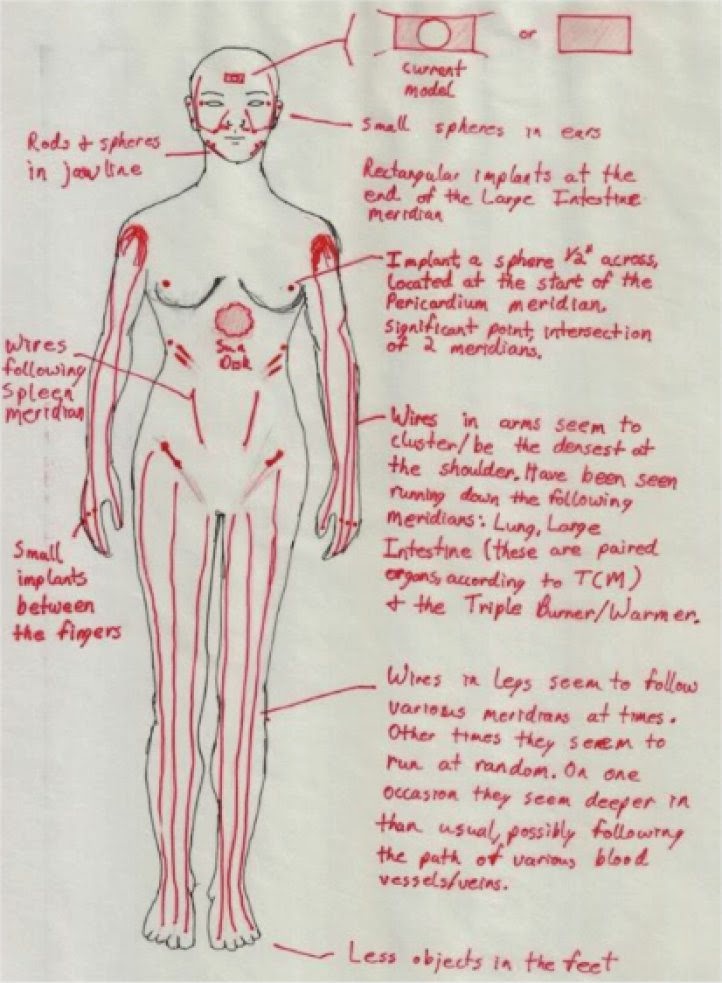 or
current
model
Small spheres in ears
Rods & spheres
in jawline
Rectangular implants at the
end of the Large Intestine
meridian
Implant, a sphere 1/2" across,
located at the start of the
Pericardium meridian.
significant point, intersection
of 2 meridians.
Sun
Disk
Wires
following
Spleen
meridian
Wires in arms seem to
cluster/be the densest at
the shoulder. Have been seen
running down the following
meridians: Lung, Large
Intestine (these are paired
organs, according to TCM)
& the Triple Burner/Warmer.
Small
implants
between
the fingers
Wires in Legs seem to follow
various meridians at times.
Other times they seem to
run at random. On one
occasion they seem deeper in
than usual, possibly following
the path of various blood
vessels/veins.
Less objects in the feet